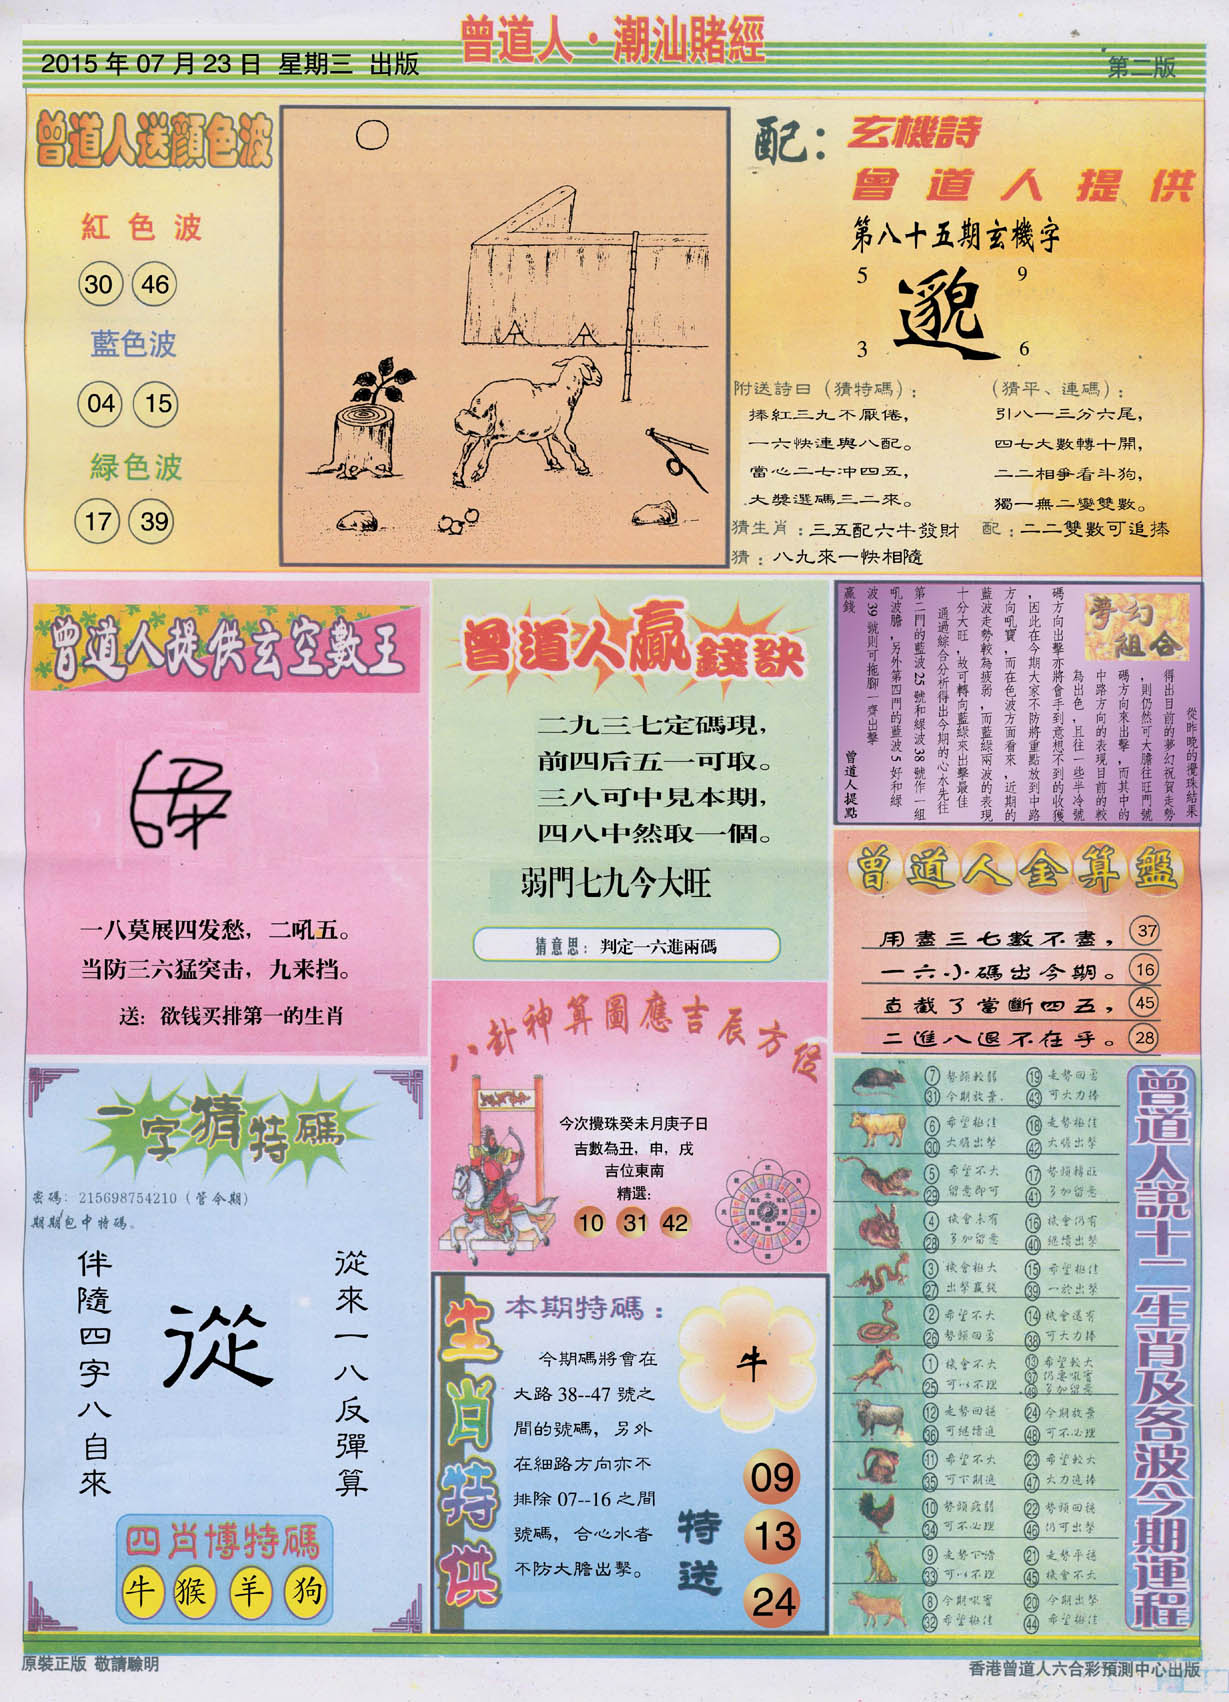 曾道人·潮汕賭經
2015 年 07 月 23 日 星期三 出版
第二版
曾道人送顏色波
紅色波
30 46
藍色波
04 15
緑色波
17 39
配：
玄機詩
曾道人提供
第八十五期玄機字
5 9
邈
3 6
附送詩日（猜特碼）：
捧紅三九不厭倦，
一六快連與八配。
當心二七冲四五，
大獎選碼三二來。
（猜平、連碼）：
引八一三分六尾，
四七大數轉十開，
二二相爭看斗狗，
獨一無二變雙數。
猜生肖：三五配六牛發財
配：二二雙數可追捧
猜：八九來一快相隨
曾道人提供玄空數王
一八莫展四发愁，二吼五。
当防三六猛突击，九来挡。
送：欲钱买排第一的生肖
曾道人贏錢訣
二九三七定碼現，
前四后五一可取。
三八可中見本期，
四八中然取一個。
弱門七九今大旺
猜意思：判定一六進兩碼
夢幻
組合
從昨晚的攪珠結果
得出目前的夢幻祝賀走勢
，則仍然可大膽往旺門號
碼方向來出擊，而其中的
中路方向的表現目前的較
為出色，且往一些半冷號
碼方向出擊亦將會手到意想不到的收獲
，因此在今期大家不防將重點放到中路
方向吼寶，而在色波方面看來，近期的
藍波走勢較為疲弱，而藍綠兩波的表現
十分大旺，故可轉向藍綠來出擊最佳
通過綜合分析得出今期的心水先往
第二門的藍波 25 號和綠波 38 號作一組
吼波膽，另外第四門的藍波 5 好和綠
波 39 號則可拖腳一齊出擊
贏錢
曾道人提點
曾道人金算盤
用盡三七數不盡， 37
一六小碼出今期。 16
直截了當斷四五， 45
二進八退不在乎。 28
八卦神算圖應吉辰方位
今次攪珠癸未月庚子日
吉數為丑，申，戌
吉位東南
精選：
10 31 42
一字猜特碼
密碼：215698754210（管令期）
期期包中特碼。
從來一八反彈算
從
伴隨四字八自來
四肖博特碼
牛 猴 羊 狗
生肖特供
本期特碼：
今期碼將會在
大路 38--47 號之
間的號碼，另外
在細路方向亦不
排除 07--16 之間
號碼，合心水者
不防大膽出擊。
牛
特送
09
13
24
曾道人說十二生肖及各波今期運程
7 勢頭較弱 19 走勢回勇
31 今期放棄. 43 可大力捧
6 希望極佳 18 走勢極佳
30 大膽出擊 42 大膽出擊
5 希望不大 17 勢頭轉旺
29 留意即可 41 多加留意
4 機會未有 16 機會仍有
28 多加留意 40 繼續出擊
3 機會極大 15 希望極佳
27 出擊贏錢 39 一於出擊
2 希望不大 14 機會還有
26 勢頭回勇 38 可大力捧
1 機會不大 13 希望較大
25 可以不理 37 仍要吼實
49 多加留意
12 走勢回穩 24 今期放棄
36 可繼續追 48 可不必理
11 希望不大 23 希望較大
35 可下期追 47 大力追捧
10 勢頭疲弱 22 勢頭回穩
34 可不必理 46 仍可出擊
9 走勢下滑 21 走勢平穩
33 可以不理 45 機會不大
8 今期吼實 20 今期出擊
32 希望極佳 44 希望極佳
原裝正版 敬請驗明
香港曾道人六合彩預測中心出版